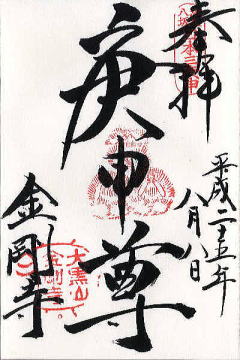 奉拝
平成二十五年
八月八日
庚申尊
金剛寺
大黒山
金剛寺